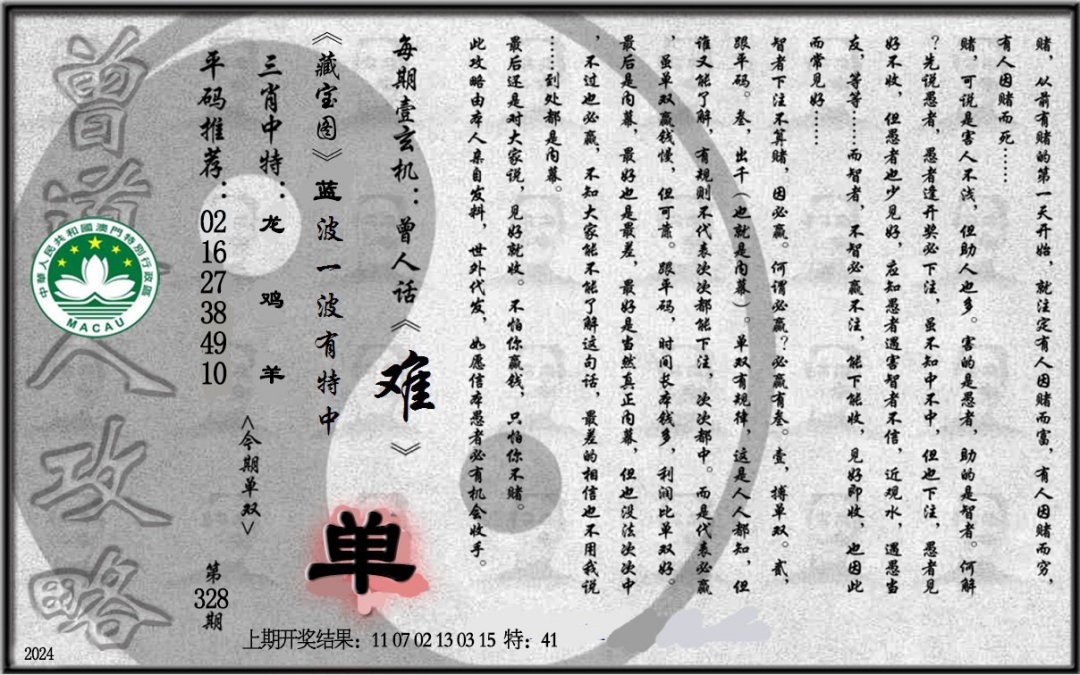 赌，从前有赌的第一天开始，就注定有人因赌而富，有人因赌而穷，
有人因赌而死……
赌，可说是害人不浅，但助人也多。害的是愚者，助的是智者。何解
？先说愚者，愚者逢开奖必下注，虽不知中不中，但也下注，愚者见
好不收，但愚者也少见好，应知愚者遇害智者不信，近观水，遇愚当
友，等等……而智者，不智必赢不注，能下能收，见好即收，也因此
而常见好……
智者下注不算赌，因必赢。何谓必赢？必赢有叁。壹，搏单双。贰，
跟平码。叁，出千（也就是内幕）。单双有规律，这是人人都知，但
谁又能了解，有规则不代表次次都能下注，次次都中。而是代表必赢
，虽单双赢钱慢，但可靠。跟平码，时间长本钱多，利润比单双好。
最后是内幕，最好也是最差，最好是当然真正内幕，但也没法次次中
，不过也必赢，不知大家能不能了解这句话，最差的相信也不用我说
……到处都是内幕。
最后还是对大家说，见好就收。不怕你赢钱，只怕你不赌。
此攻略由本人亲自发料，世外代发，如愿信本愚者必有机会收手。
每期壹玄机：曾人话《难》
《藏宝图》蓝波一波有特中
三肖中特：龙 鸡 羊
平码推荐：02 16 27 38 49 10
<今期单双>
单
第328期
曾道人攻略
中華人民共和國澳門特別行政區
MACAU
上期开奖结果：11 07 02 13 03 15 特：41
2024